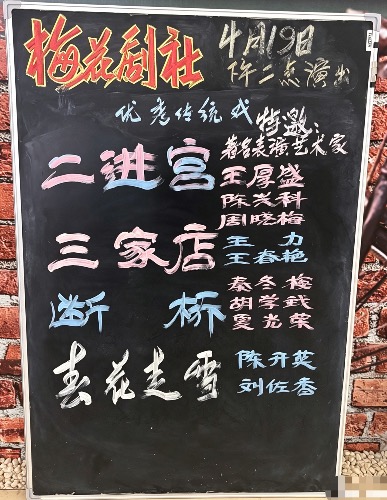 梅花剧社
4月19日
下午二点演出
优秀传统戏
特邀:
著名表演艺术家
二进宫
王厚盛
陈茂科
周晓梅
三家店
王 力
王春艳
断 桥
秦冬梅
胡学武
夏光荣
春花走雪
陈开英
刘佐香